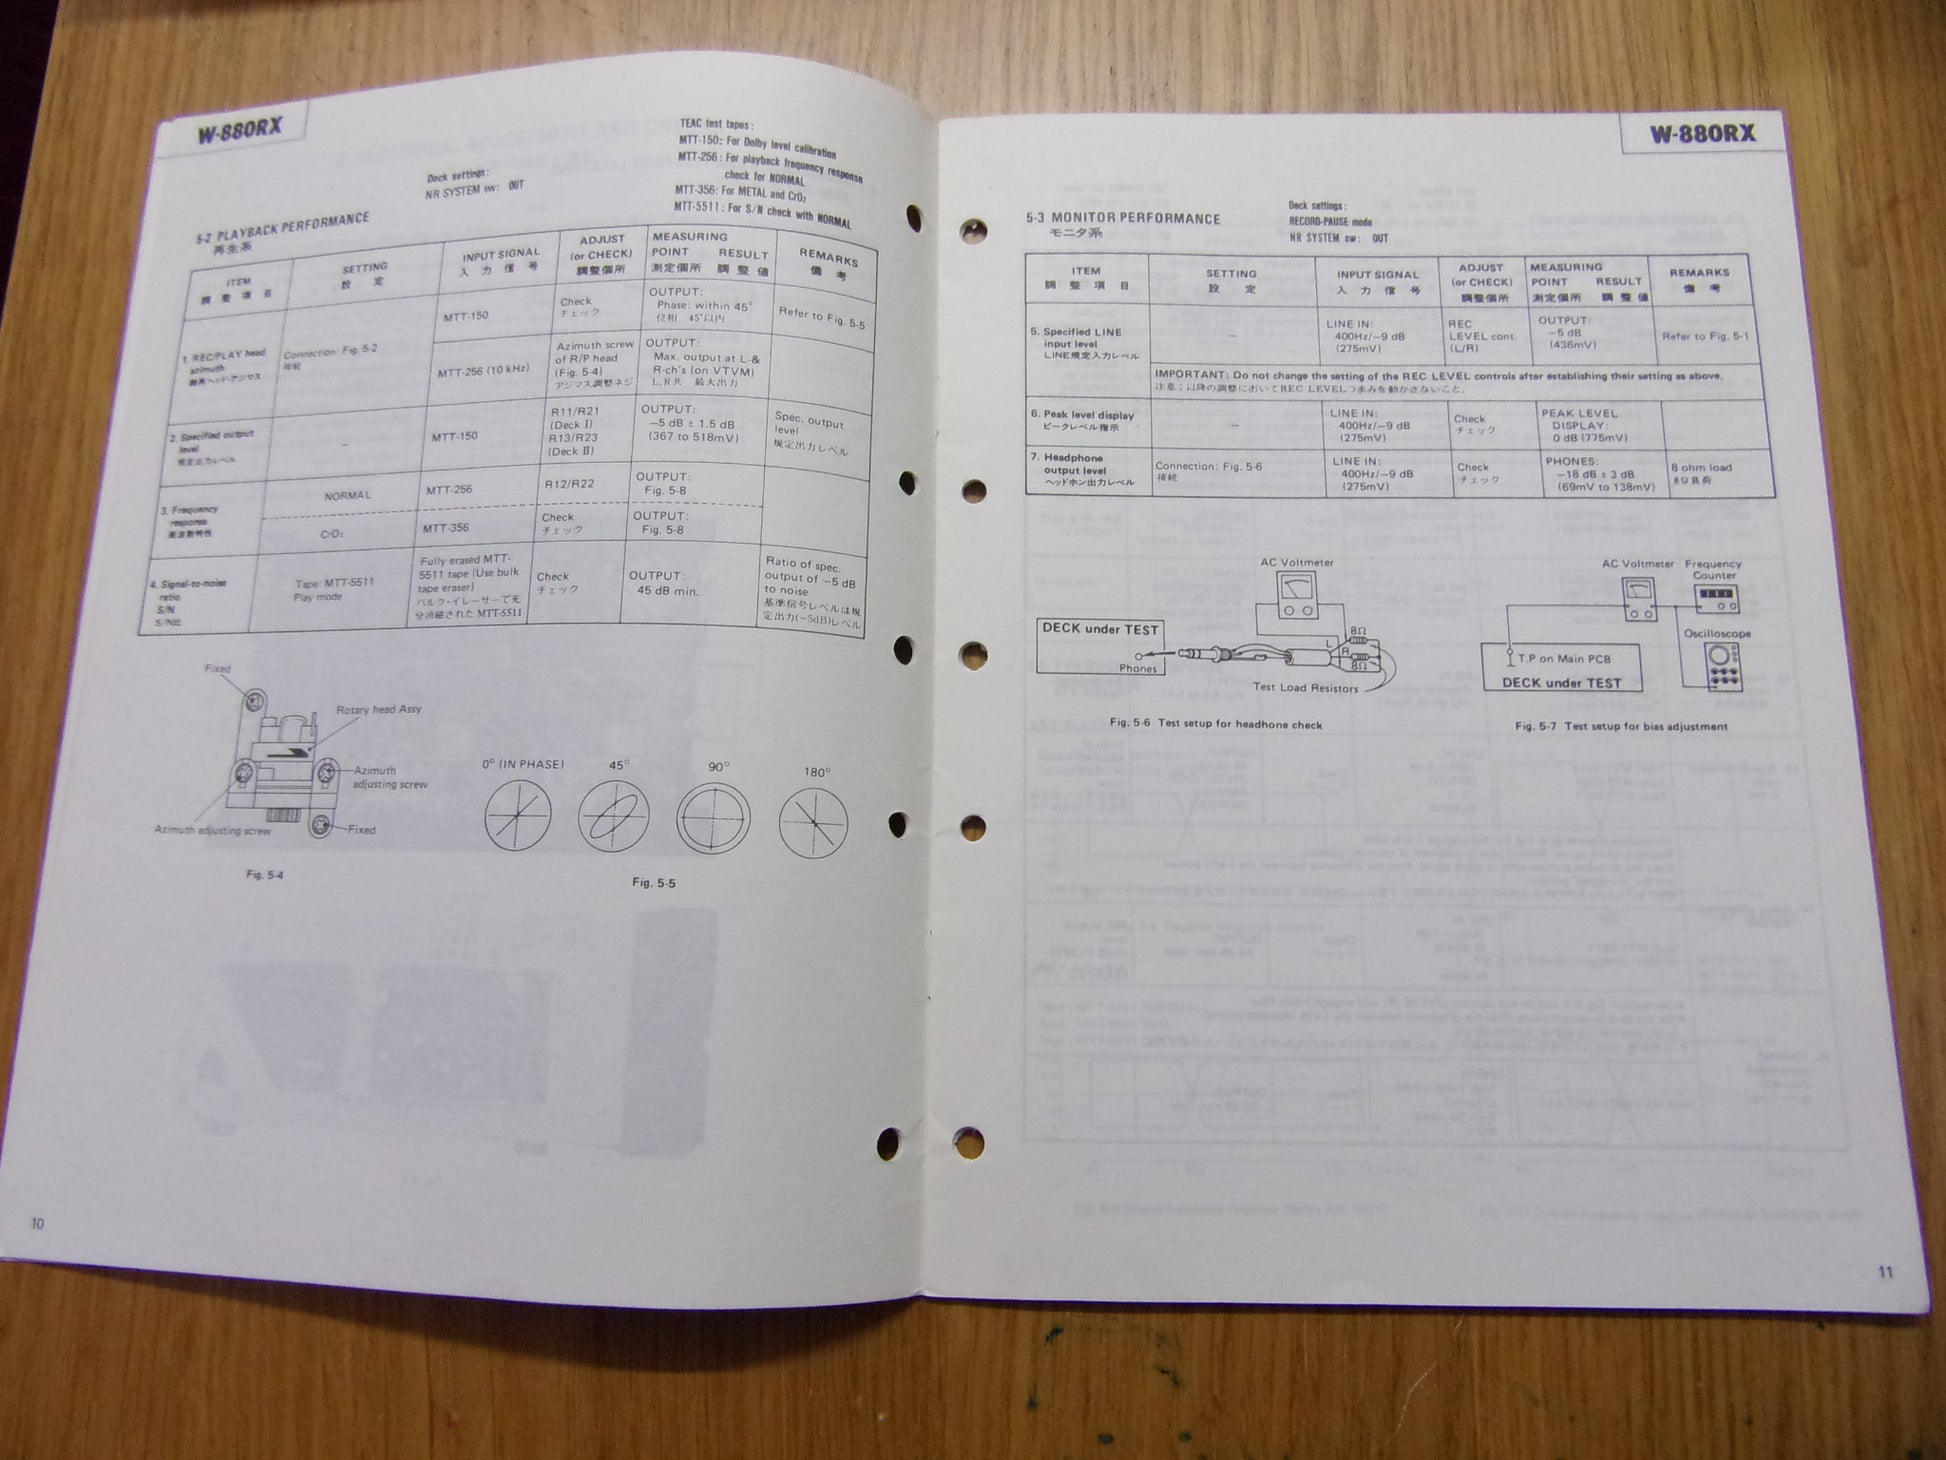 W-880RX
Deck settings:
NR SYSTEM sw: OUT
TEAC test tapes:
MTT-150: For Dolby level calibration
MTT-256: For playback frequency response
check for NORMAL
MTT-356: For METAL and CrO₂
MTT-5511: For S/N check with NORMAL
5-2 PLAYBACK PERFORMANCE
再生系
ITEM
調整項目
SETTING
設定
INPUT SIGNAL
入力信号
ADJUST
(or CHECK)
調整個所
MEASURING
POINT RESULT
測定個所 調整値
REMARKS
備考
1. REC/PLAY head
azimuth
録再ヘッド・アジマス
Connection: Fig. 5-2
接続
MTT-150
Check
チェック
OUTPUT:
Phase: within 45°
位相 45°以内
Refer to Fig. 5-5
MTT-256 (10 kHz)
Azimuth screw
of R/P head
(Fig. 5-4)
アジマス調整ネジ
OUTPUT:
Max. output at L-&
R-ch's (on VTVM)
L, R共 最大出力
2. Specified output
level
規定出力レベル
–
MTT-150
R11/R21
(Deck I)
R13/R23
(Deck II)
OUTPUT:
−5 dB ± 1.5 dB
(367 to 518mV)
Spec. output
level
規定出力レベル
3. Frequency
response
周波数特性
NORMAL
MTT-256
R12/R22
OUTPUT:
Fig. 5-8
CrO₂
MTT-356
Check
チェック
OUTPUT:
Fig. 5-8
4. Signal-to-noise
ratio
S/N
S/N比
Tape: MTT-5511
Play mode
Fully erased MTT-
5511 tape (Use bulk
tape eraser)
バルク・イレーサーで充
分消磁された MTT-5511
Check
チェック
OUTPUT:
45 dB min.
Ratio of spec.
output of −5 dB
to noise
基準信号レベルは規
定出力(−5dB)レベル
Fixed
Rotary head Assy
Azimuth
adjusting screw
Azimuth adjusting screw
Fixed
Fig. 5-4
0° (IN PHASE)
45°
90°
180°
Fig. 5-5
10
W-880RX
5-3 MONITOR PERFORMANCE
モニタ系
Deck settings:
RECORD-PAUSE mode
NR SYSTEM sw: OUT
ITEM
調整項目
SETTING
設定
INPUT SIGNAL
入力信号
ADJUST
(or CHECK)
調整個所
MEASURING
POINT RESULT
測定個所 調整値
REMARKS
備考
5. Specified LINE
input level
LINE規定入力レベル
–
LINE IN:
400Hz/−9 dB
(275mV)
REC
LEVEL cont.
(L/R)
OUTPUT:
−5 dB
(436mV)
Refer to Fig. 5-1
IMPORTANT: Do not change the setting of the REC LEVEL controls after establishing their setting as above.
注意:以降の調整においてREC LEVELつまみを動かさないこと。
6. Peak level display
ピークレベル指示
–
LINE IN:
400Hz/−9 dB
(275mV)
Check
チェック
PEAK LEVEL
DISPLAY:
0 dB (775mV)
7. Headphone
output level
ヘッドホン出力レベル
Connection: Fig. 5-6
接続
LINE IN:
400Hz/−9 dB
(275mV)
Check
チェック
PHONES:
−18 dB ± 3 dB
(69mV to 138mV)
8 ohm load
8Ω負荷
AC Voltmeter
DECK under TEST
Phones
L
R
8Ω
8Ω
Test Load Resistors
Fig. 5-6 Test setup for headhone check
AC Voltmeter
Frequency
Counter
Oscilloscope
T.P on Main PCB
DECK under TEST
Fig. 5-7 Test setup for bias adjustment
11